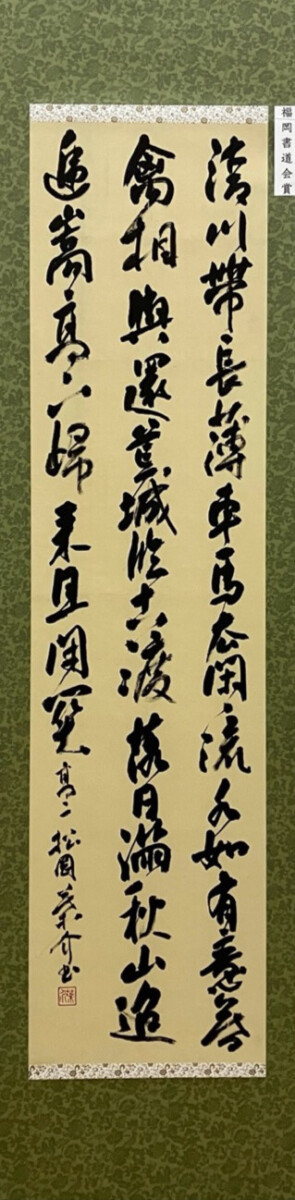 福岡書道会賞
清川帶長薄車馬去閑々流水如有意暮
禽相與還荒城臨古渡落日満秋山迢
逓嵩高下歸来且閉關 高二 松岡 介書